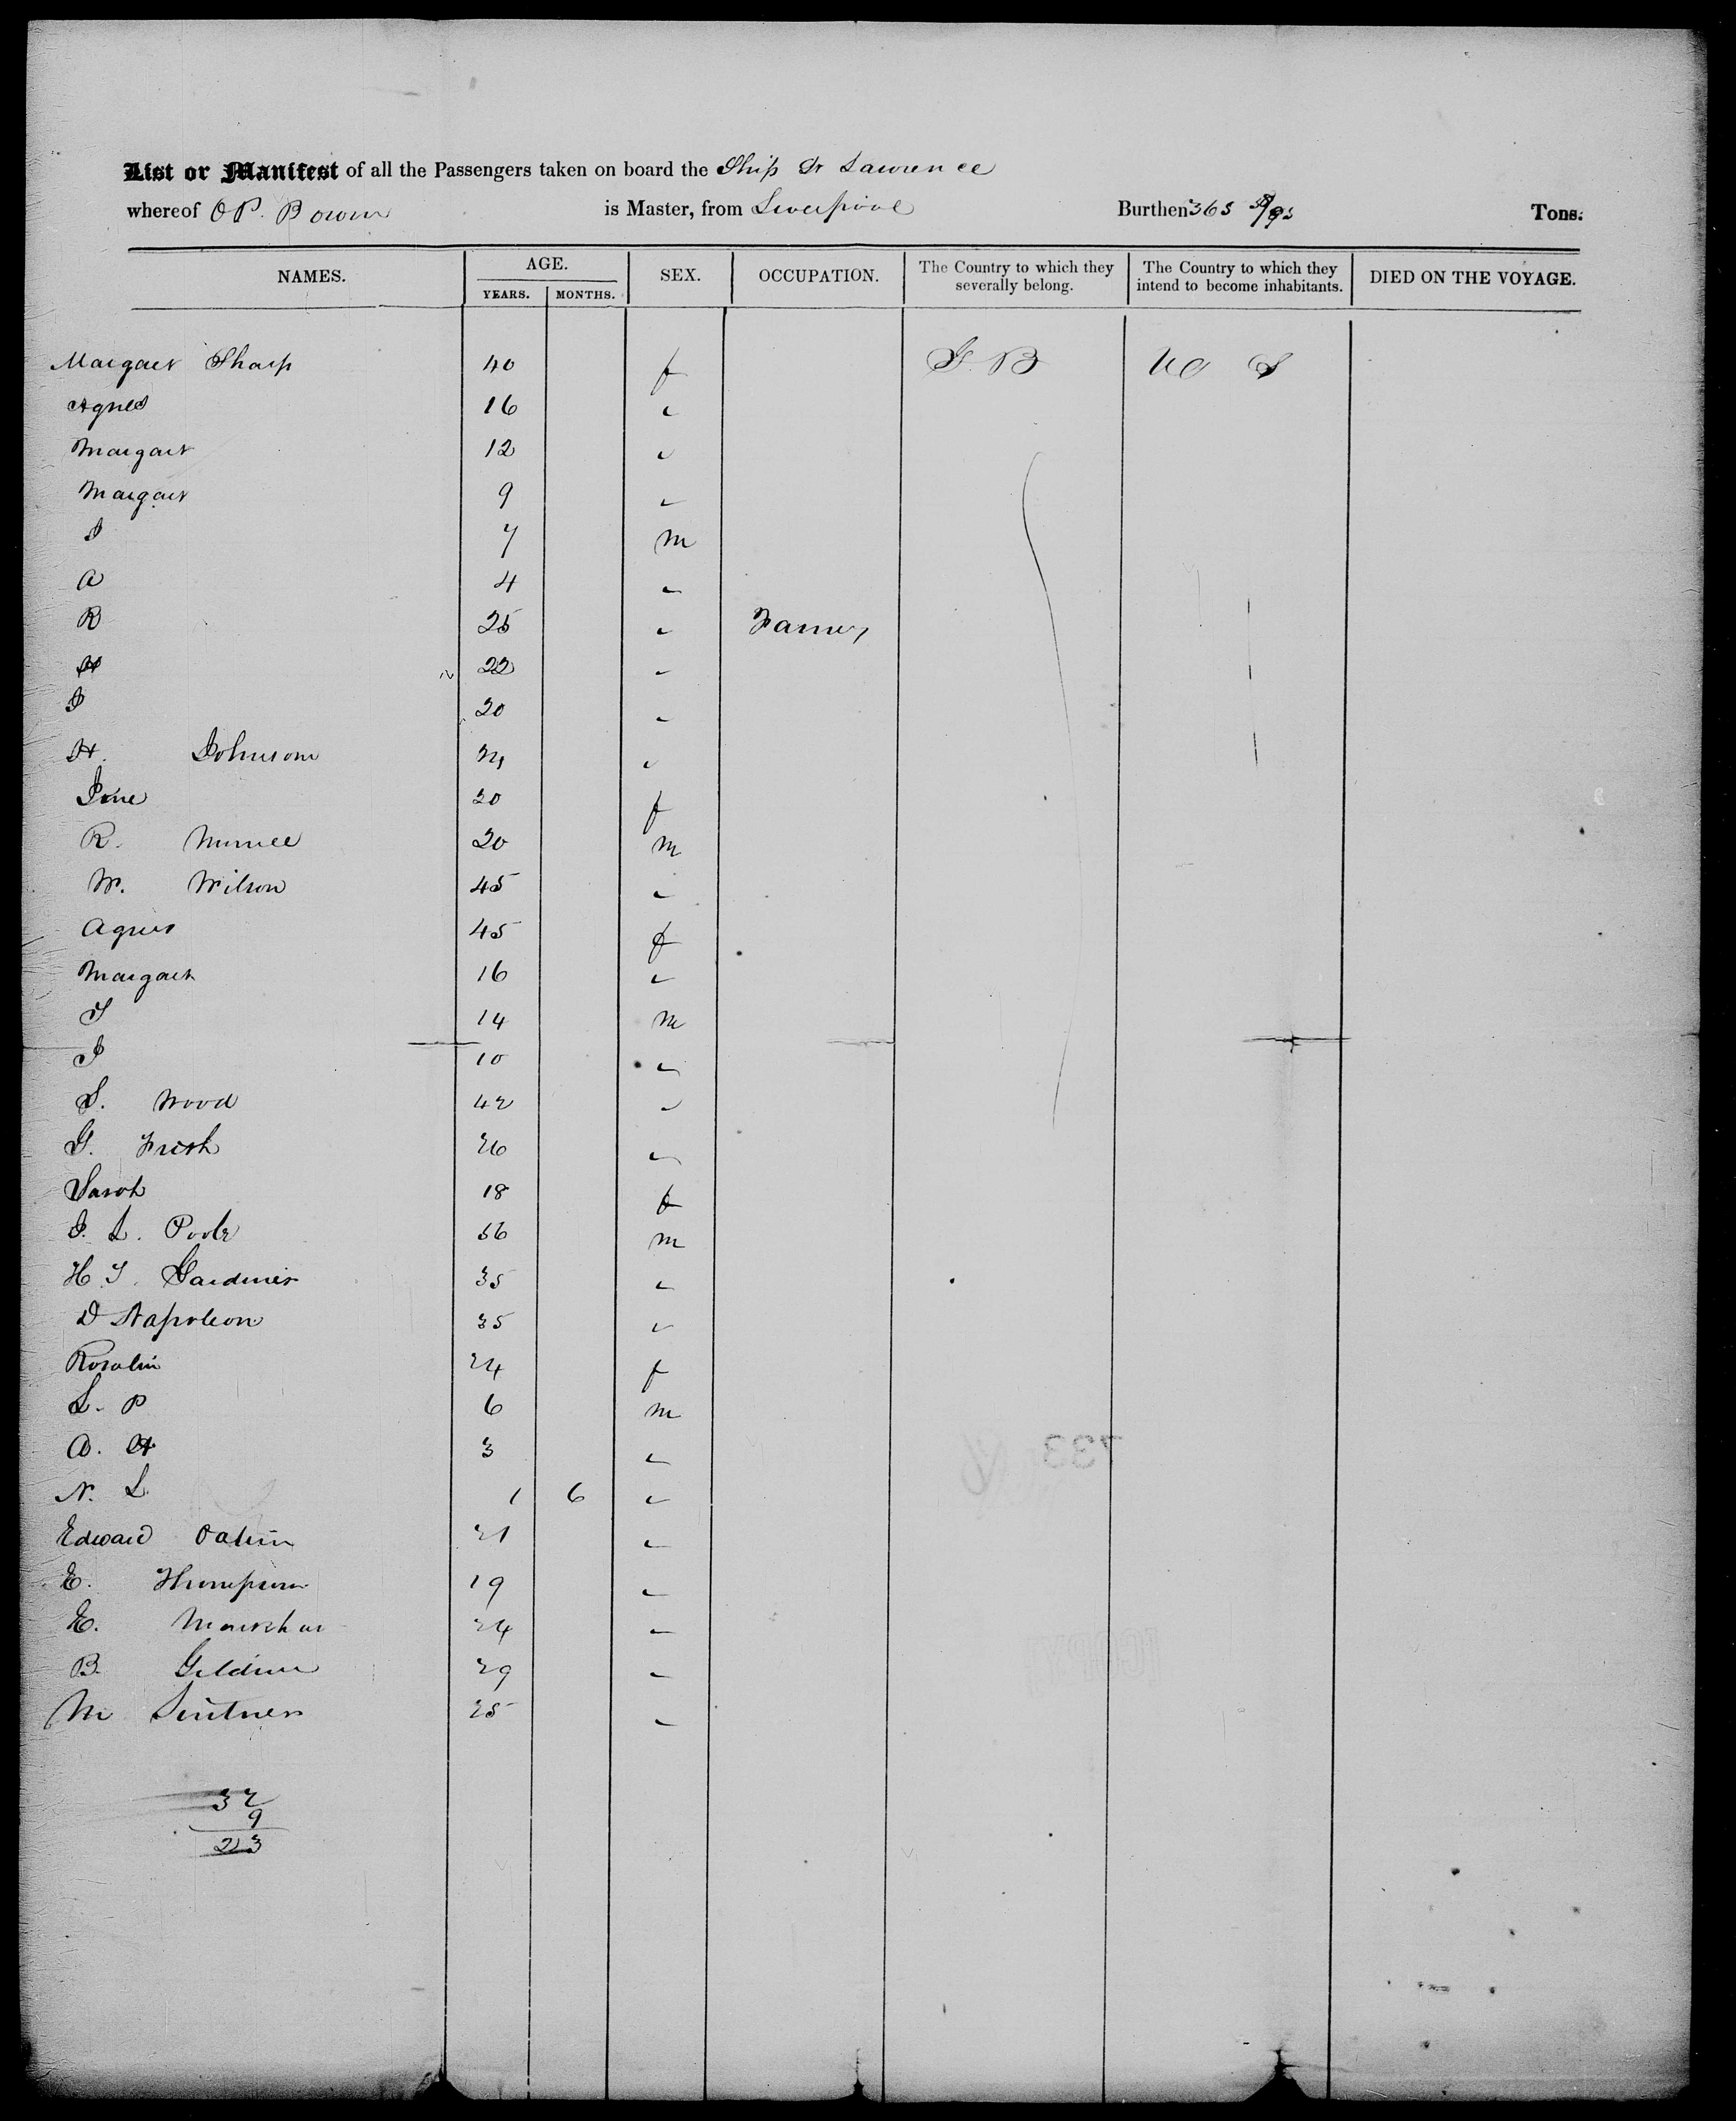 List or Manifest of all the Passengers taken on board the Ship St Lawrence
whereof O P. Bown is Master, from Liverpool Burthen 365 /95 Tons.
NAMES. AGE. YEARS. MONTHS. SEX. OCCUPATION. The Country to which they severally belong. The Country to which they intend to become inhabitants. DIED ON THE VOYAGE.
Margaret Sharp 40 f G. B U S
Agnes 16 "
Margaret 12 "
Margaret 9 "
J 7 m
A 4 "
R 25 " Farmer
H 22 "
J 20 "
H. Johnson "
Jane 20 f
R. 20 m
W. Wilson 45 "
Agnes 45 f
Margaret 16 "
T 14 m
J 10 "
S. Wood 42 "
G. Frish 26 "
Sarah 18 f
J. L. Poole 56 m
H. T. Gardiner 35 "
D Napoleon 35 "
Rosalin 24 f
L. P 6 m
A. H 3 "
N. L. 1 6 "
Edward 21 "
E. Thompson 19 "
E. 24 "
B. 29 "
M 25 "
32
9
23